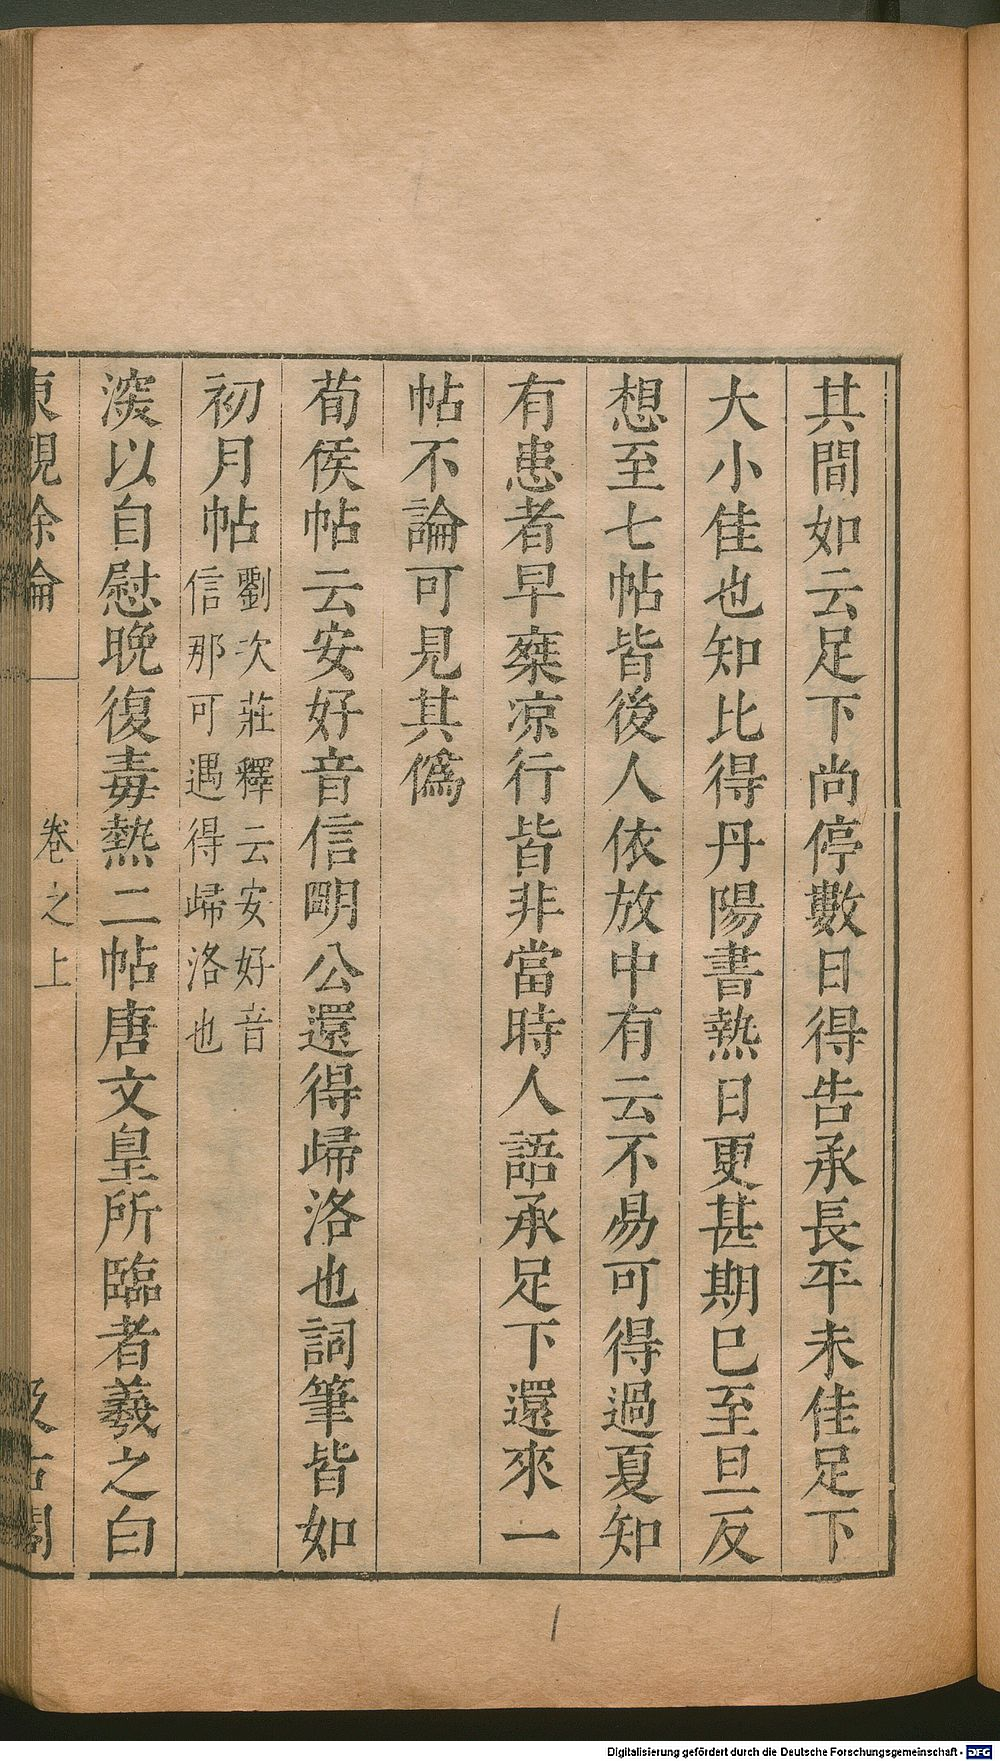 其間如云足下尚停數日得告承長平未佳足下
大小佳也知比得丹陽書熱日更甚期巳至旦反
想至七帖皆後人依放中有云不易可得過夏知
有患者早蕖凉行皆非當時人語承足下還來一
帖不論可見其僞
荀侯帖云安好音信明公還得歸洛也詞筆皆如
初月帖劉次莊釋云安好音
信那可遇得歸洛也
深以自慰晚復毒熱二帖唐文皇所臨者羲之白
東觀餘論
卷之上
汲古閣
Digitalisierung gefördert durch die Deutsche Forschungsgemeinschaft - DFG